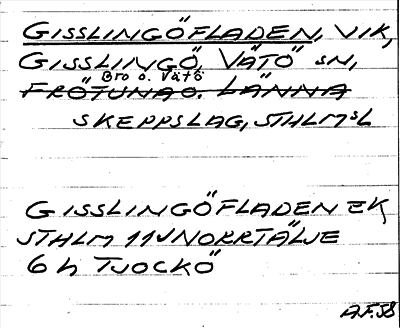 GISSLINGÖFLADEN, VIK,
GISSLINGÖ, VÄTÖ SN,
Bro o. Vätö
FRÖTUNA O. LÄNNA
SKEPPSLAG, STHLMS L
GISSLINGÖFLADEN EK
STHLM 11J NORRTÄLJE
6 h TJOCKÖ
A.F. 58